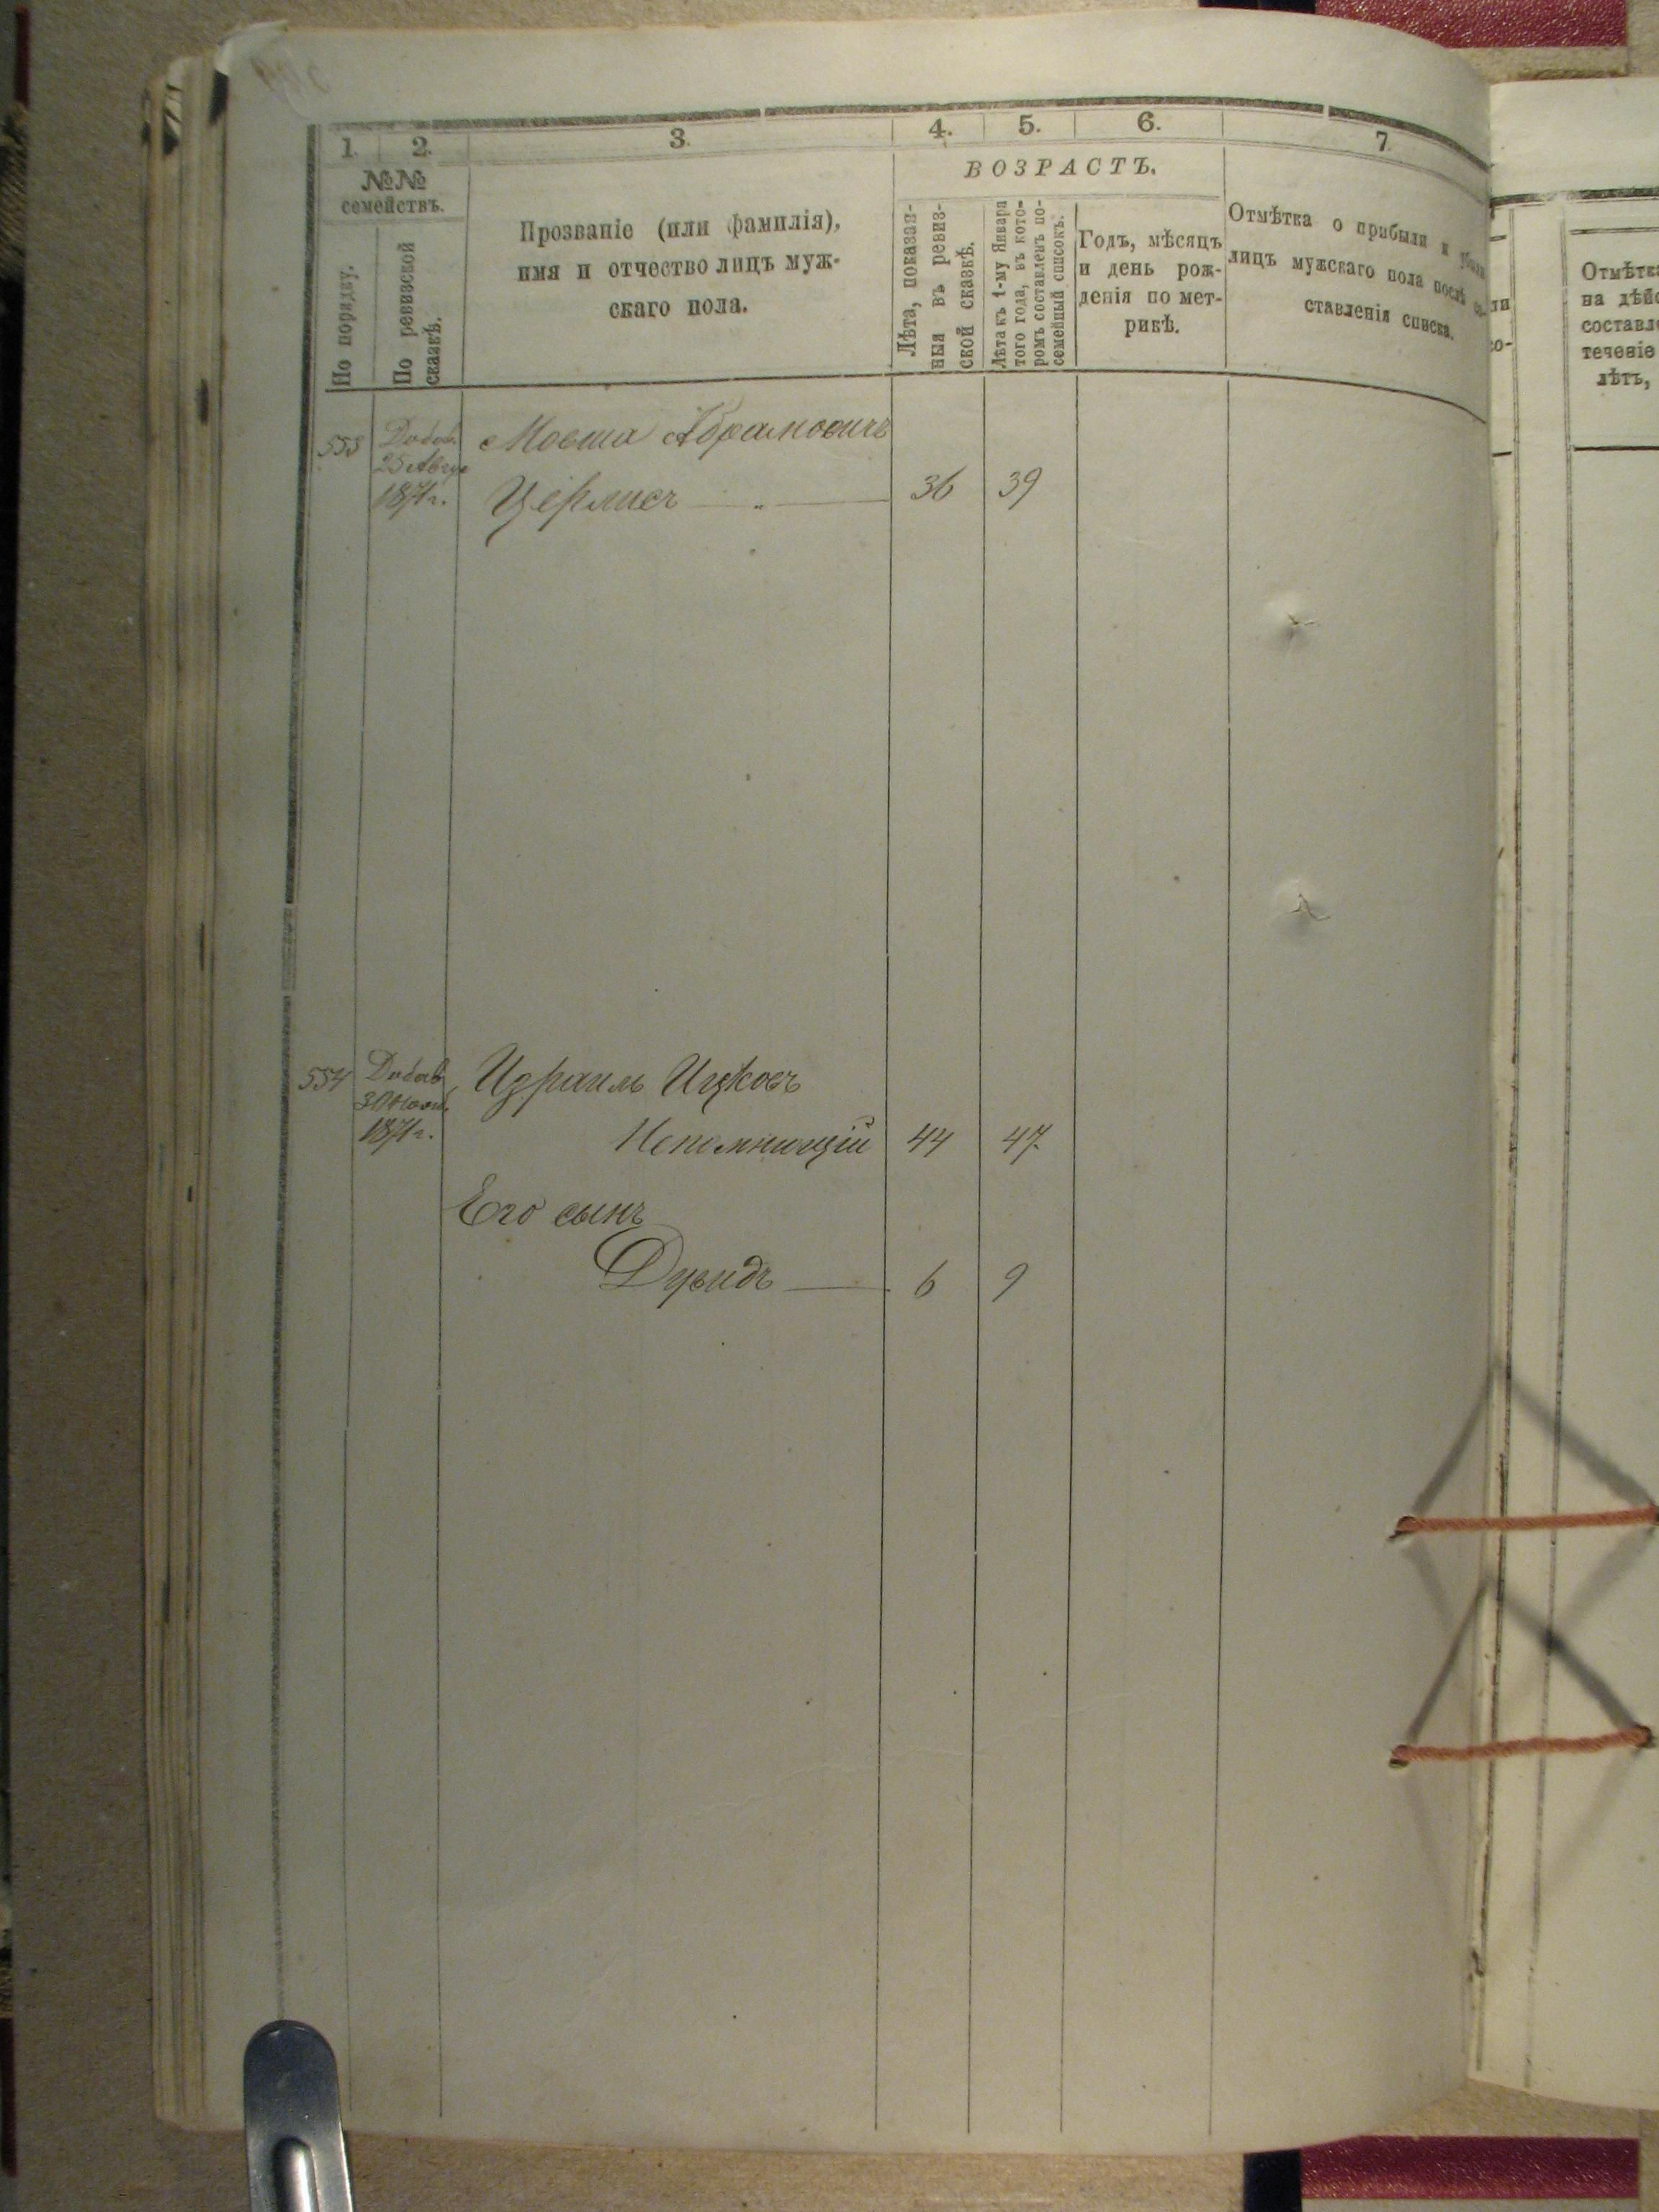 1. 2. 3. 4. 5. 6. 7
№№ семействъ.
По порядку.
По ревизской сказкѣ.
Прозваніе (или фамилія),
имя и отчество лицъ муж-
скаго пола.
ВОЗРАСТЪ.
Лѣта, показан-
ныя въ ревиз-
ской сказкѣ.
Лѣта къ 1-му Января
того года, въ кото-
ромъ составленъ по-
семейный списокъ.
Годъ, мѣсяцъ
и день рож-
денія по мет-
рикѣ.
Отмѣтка о прибыли и убыли
лицъ мужскаго пола послѣ со-
ставленія списка.
553 Добав. Мовша Абрамовичъ
25 Авгус
1871 г. 36 39
554 Добав. Израиль Ицковъ
1871 г. Непомнющій 44 47
Его сынъ
6 9
ли
со-
Отмѣтка
на дѣйс
составл
теченіе
лѣтъ,